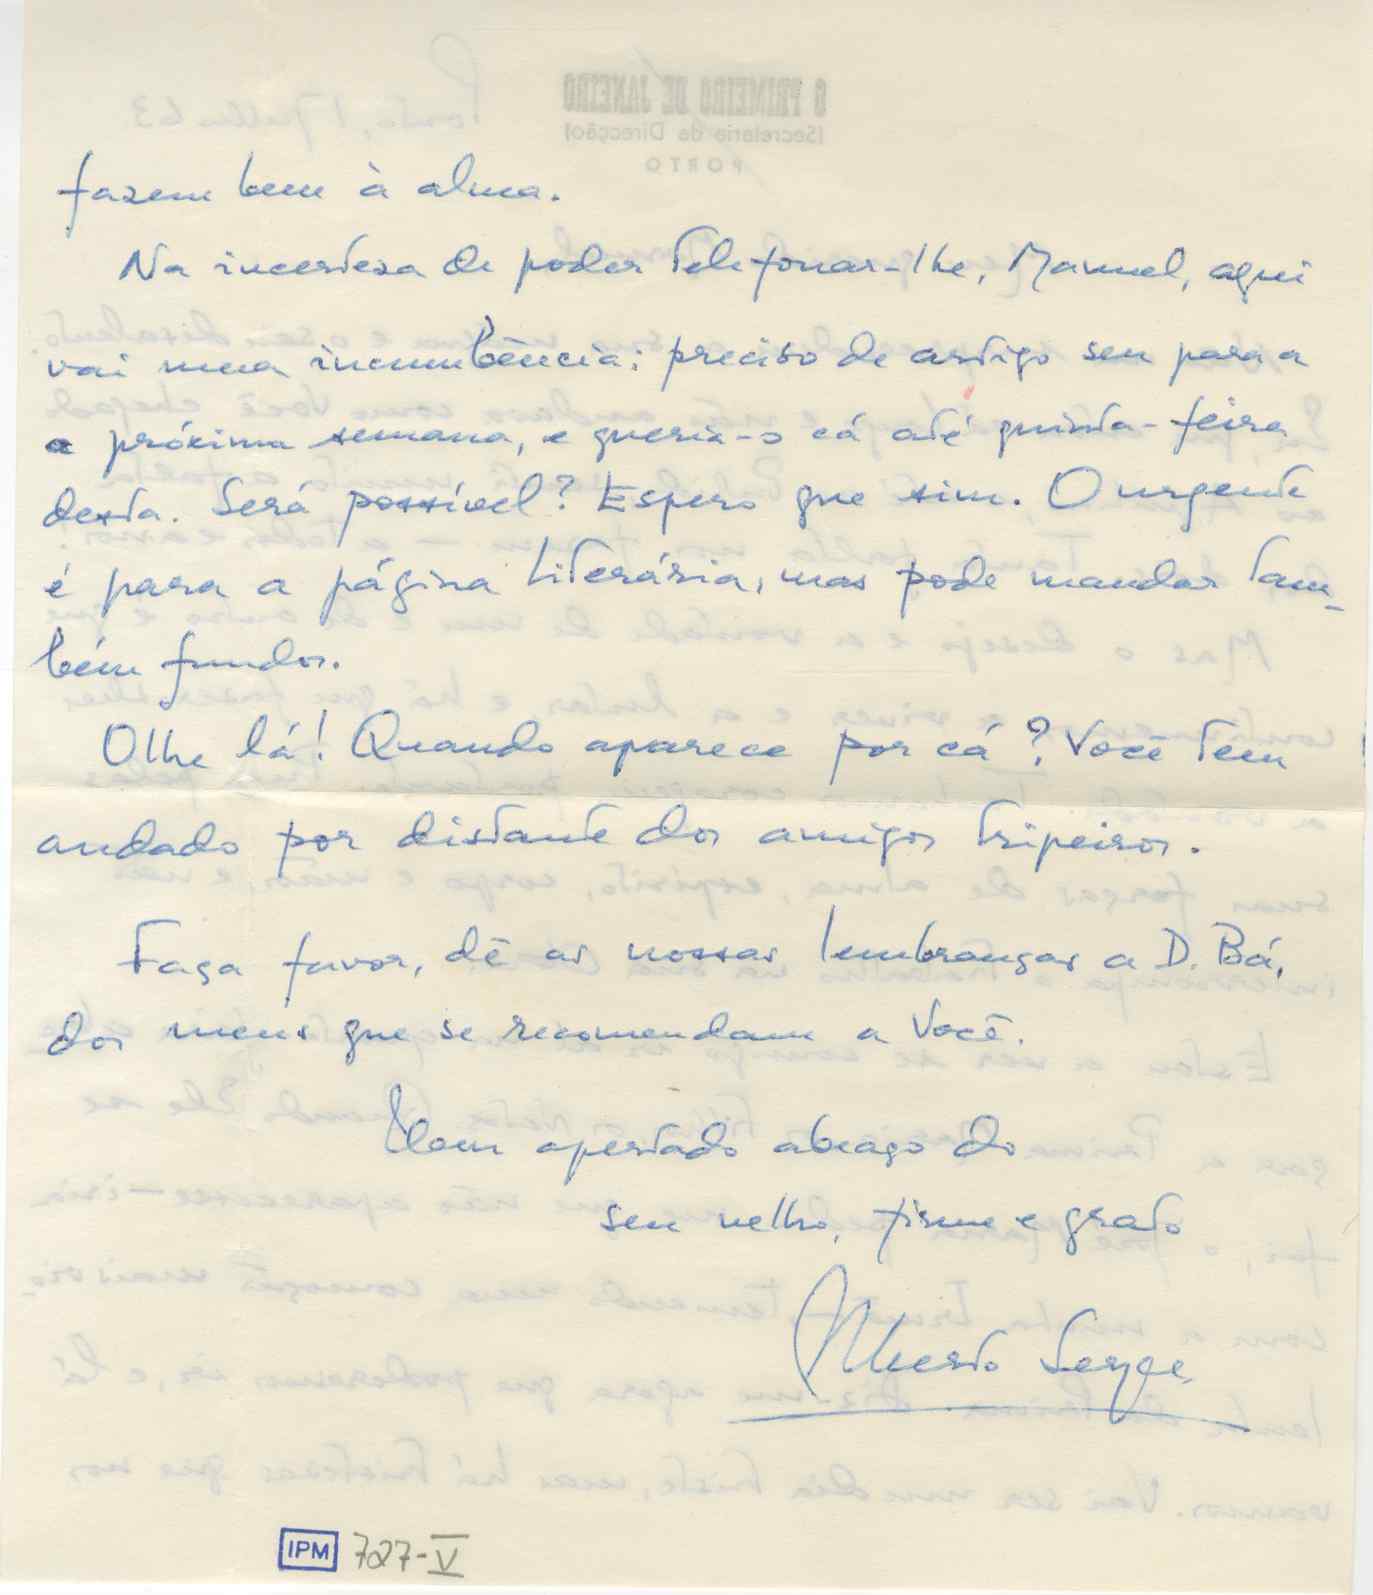 fazem bem à alma.
Na incerteza de poder telefonar-lhe, Manuel, aqui
vai uma incumbência: preciso de artigo seu para a
a próxima semana, e queria-o cá até quinta-feira
desta. Será possível? Espero que sim. O urgente
é para a página literária, mas pode mandar tam-
bém fundos.
Olhe lá! Quando aparece por cá? Você tem
andado por distante dos amigos tripeiros.
Faça favor, dê as nossas lembranças a D. Bá,
dos meus que se recomendam a Você.
Um apertado abraço do
seu velho, firme e grato
Alberto Serpa
IPM 727-V